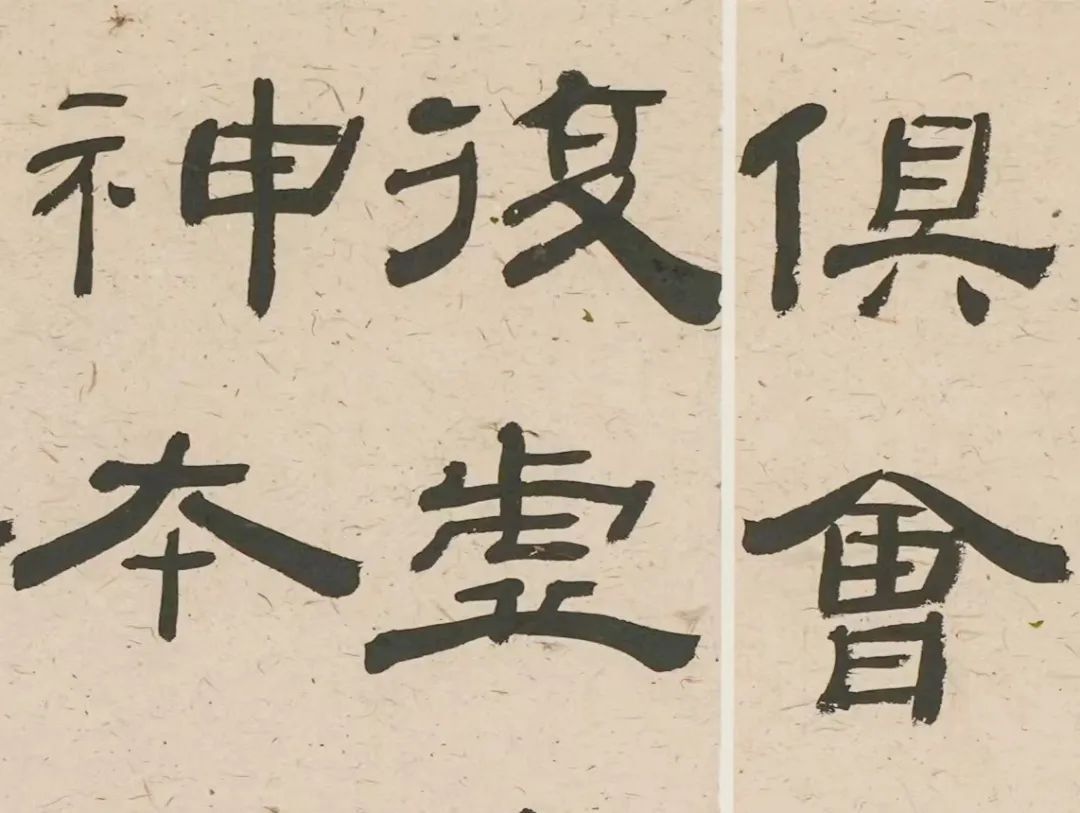 俱會
復虛
神本